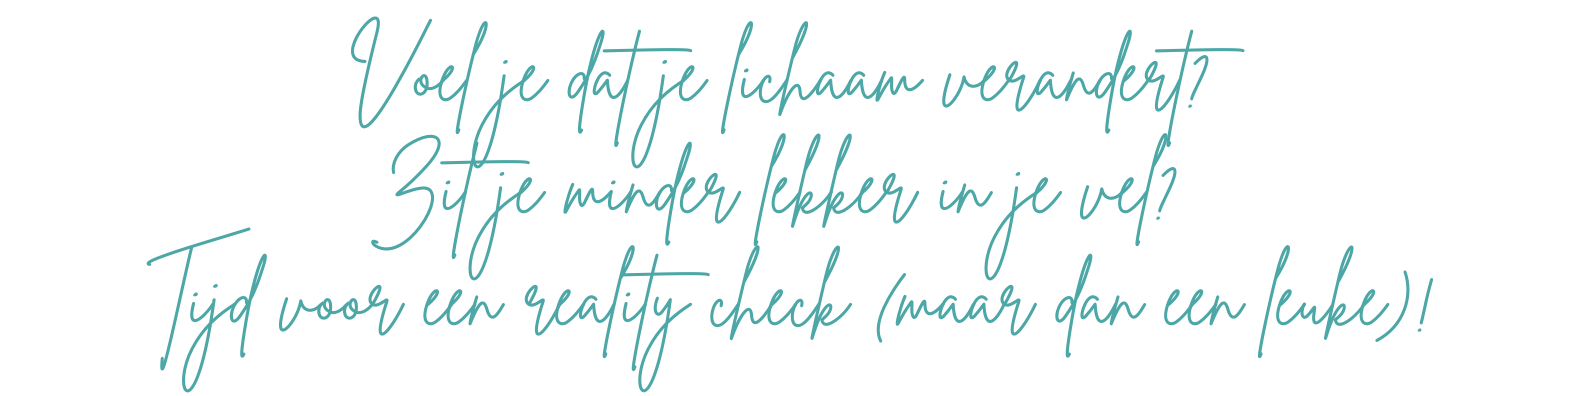 Voel je dat je lichaam verandert?
Zit je minder lekker in je vel?
Tijd voor een reality check (maar dan een leuke)!